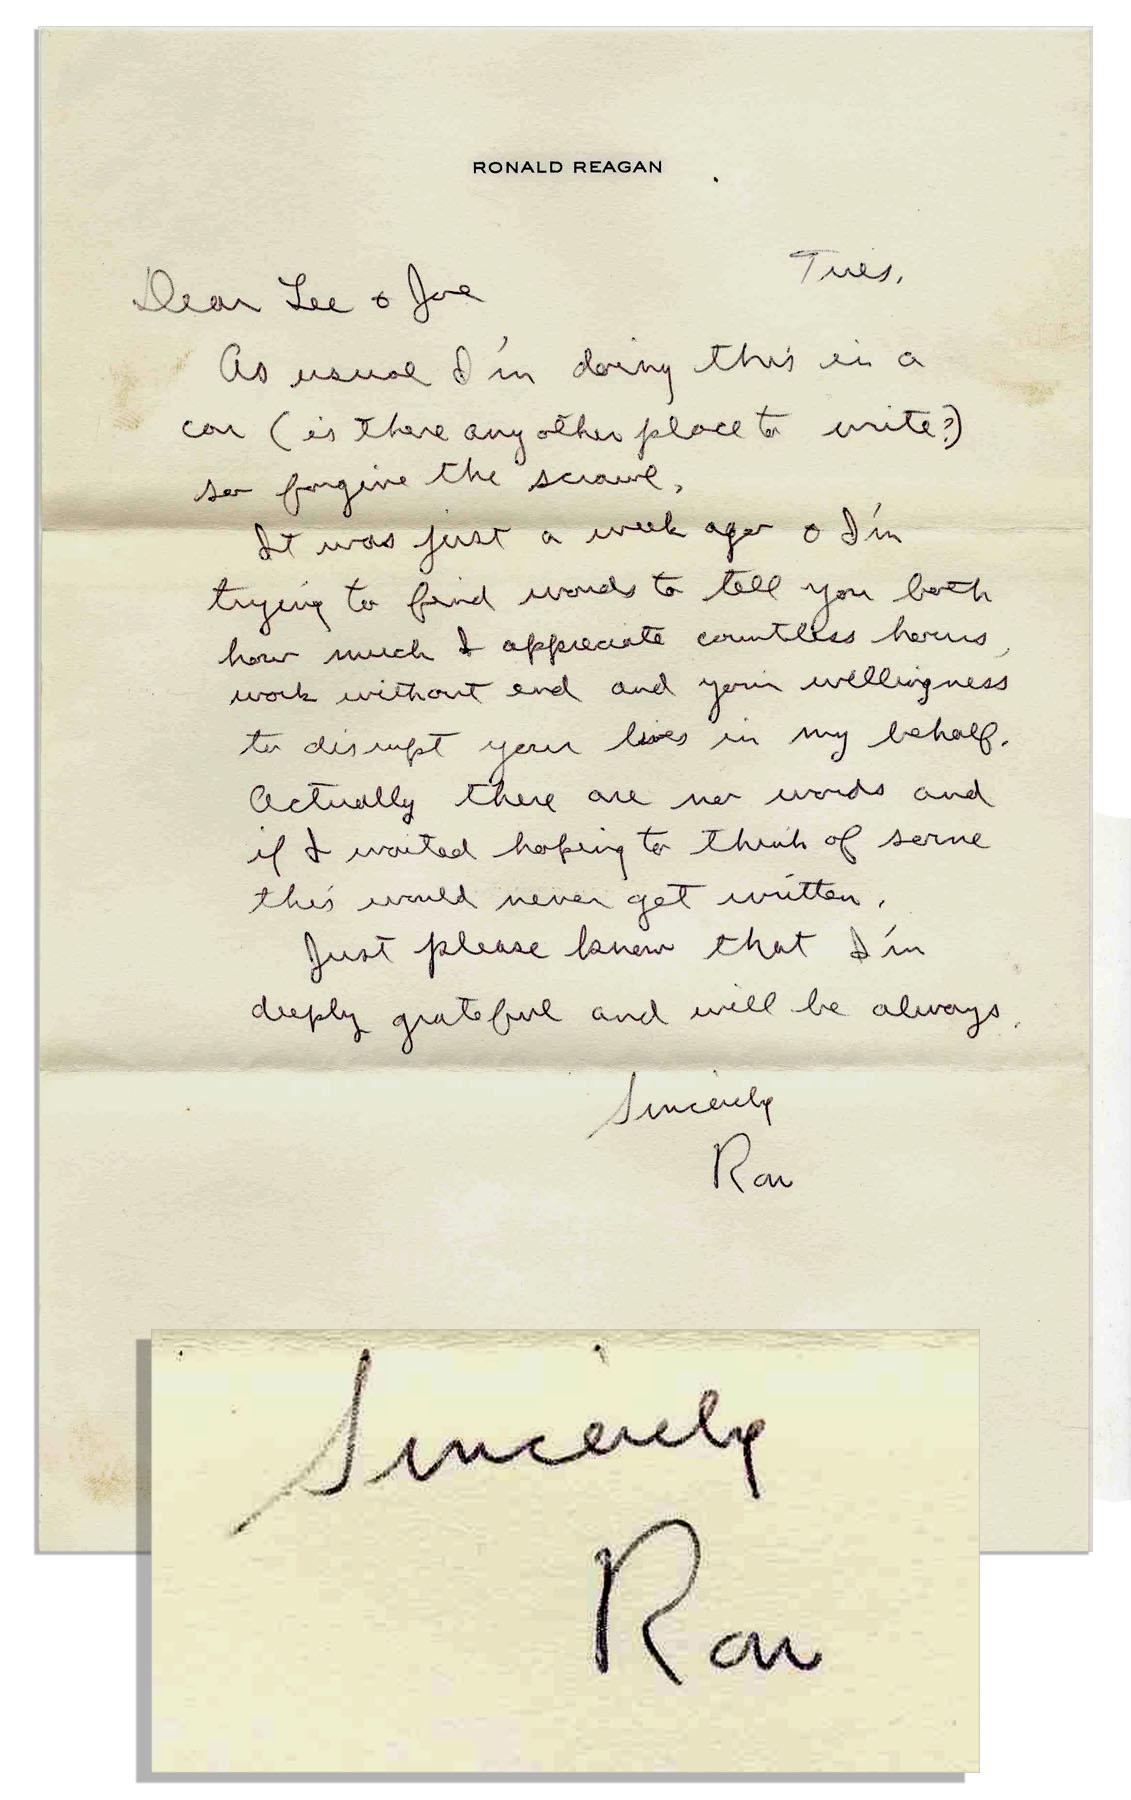 RONALD REAGAN
Tues.
Dear Lee & Joe
As usual I'm doing this in a
car (is there any other place to write?)
so forgive the scrawl.
It was just a week ago & I'm
trying to find words to tell you both
how much I appreciate countless hours,
work without end and your willingness
to disrupt your lives in my behalf.
Actually there are no words and
if I waited hoping to think of some
this would never get written.
Just please know that I'm
deeply grateful and will be always.
Sincerely
Ron
Sincerely
Ron